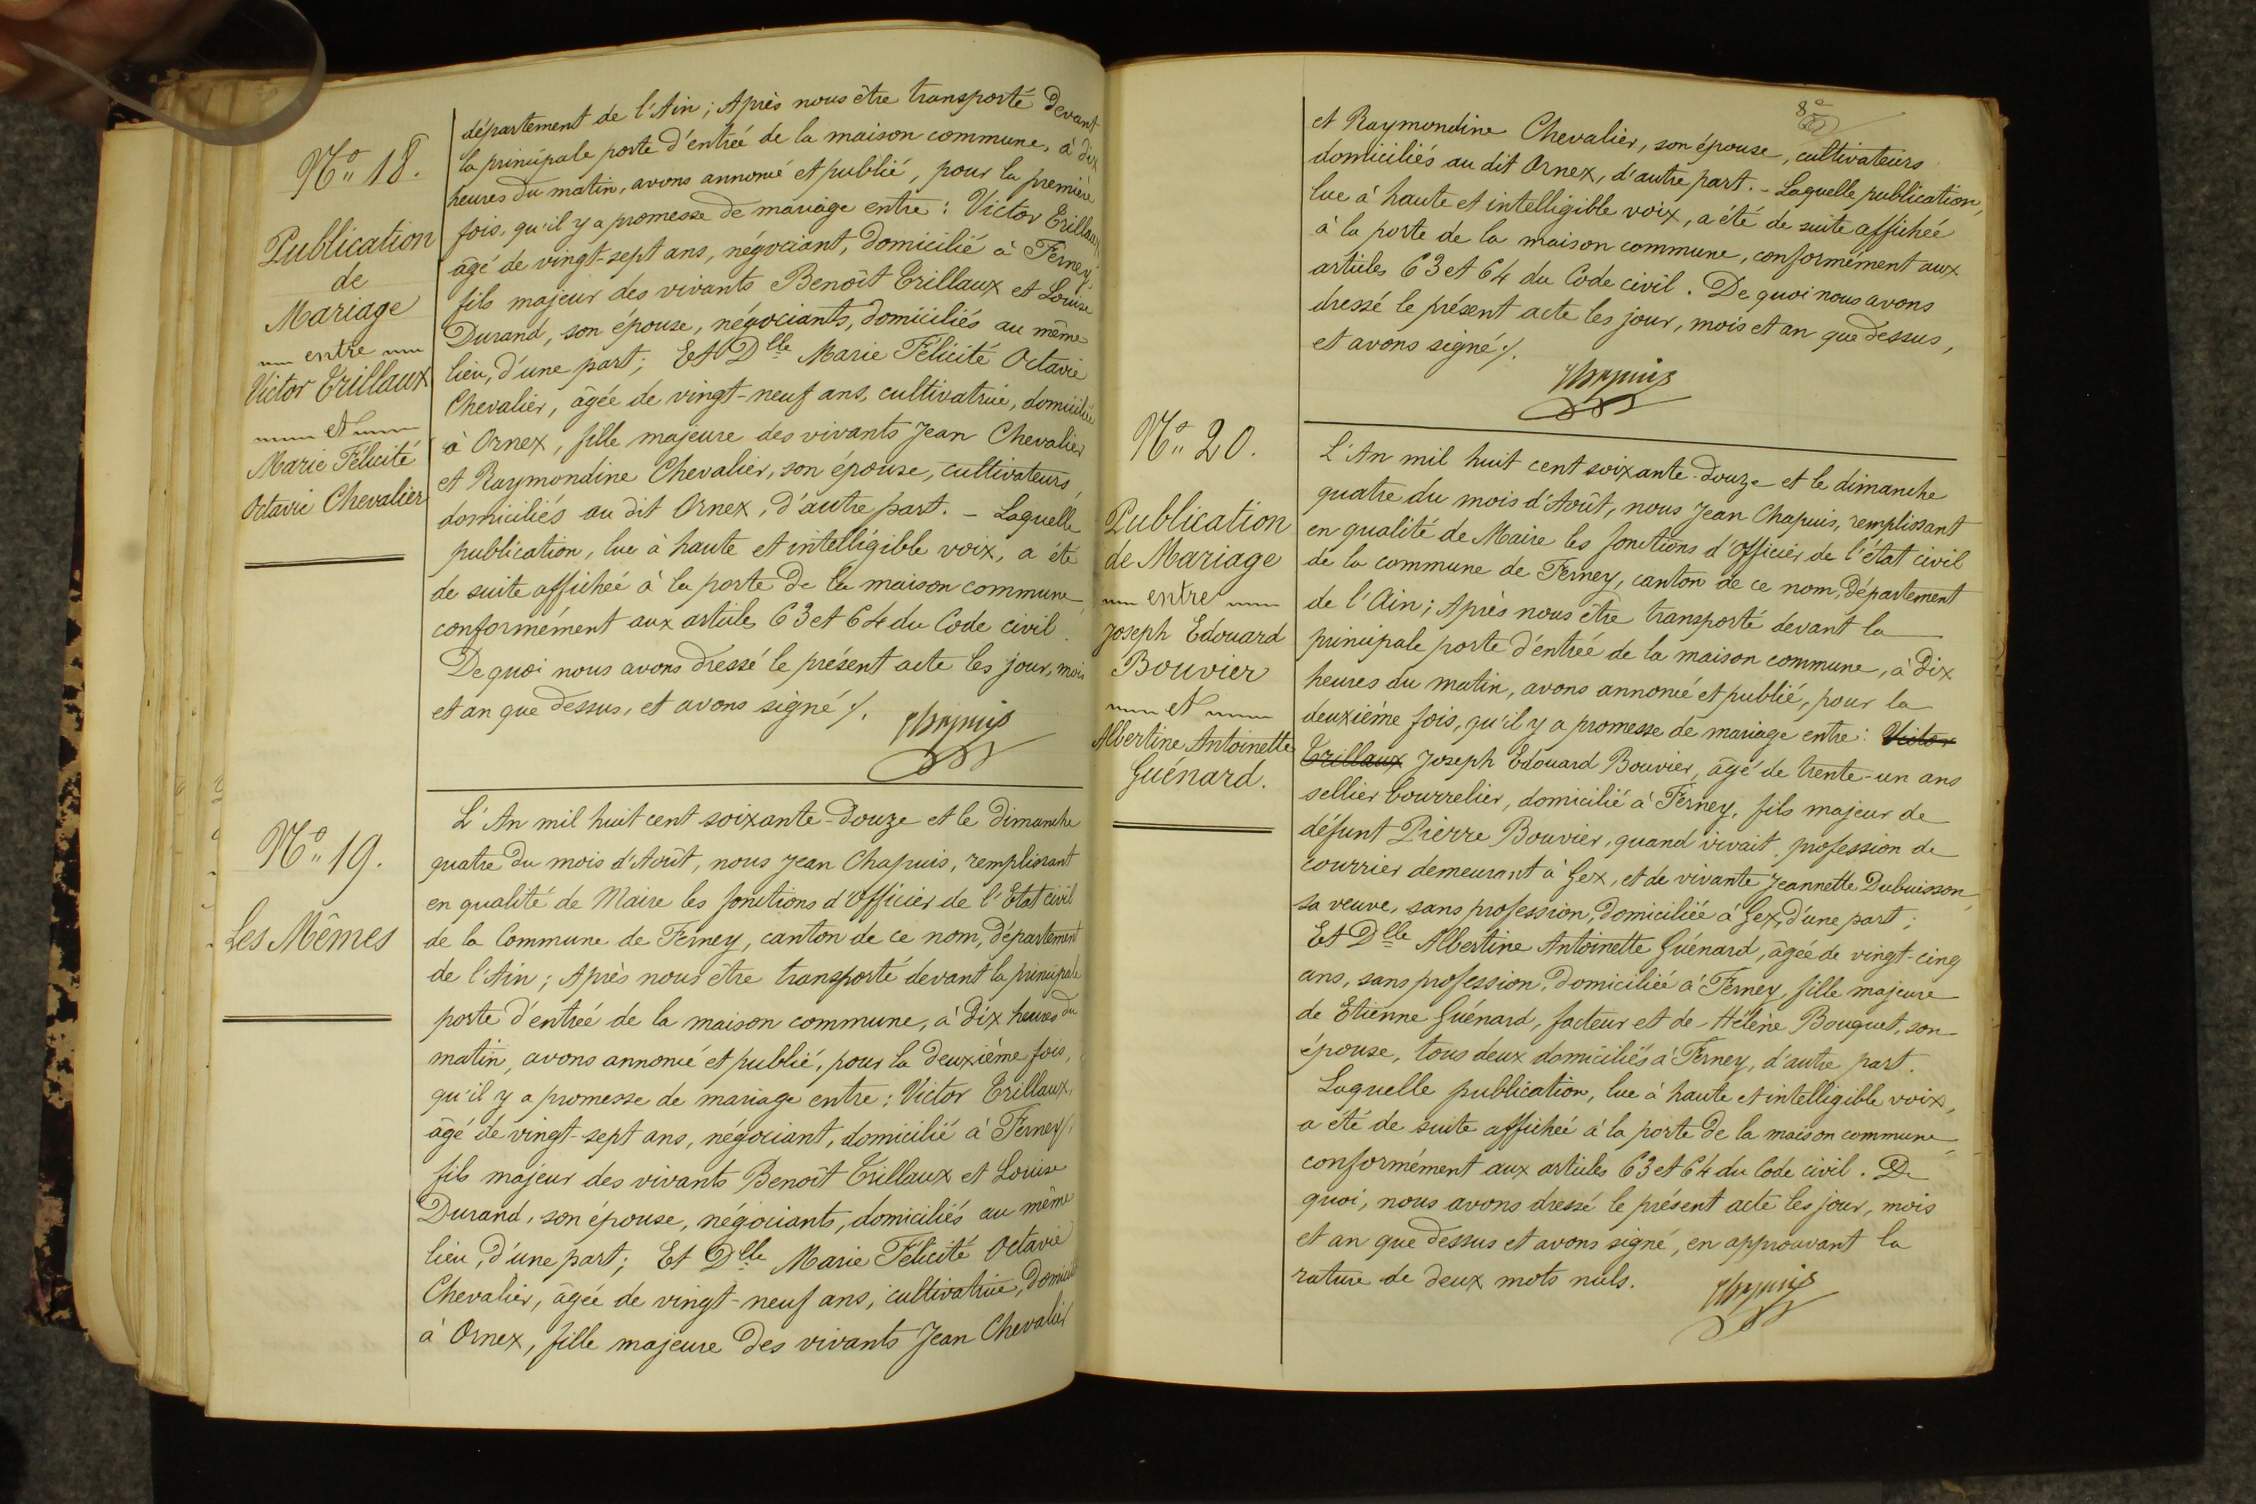 N° 18.
Publication
de
Mariage
entre
Victor Trillaux
et
Marie Félicité
Octavie Chevalier
département de l'Ain ; Après nous être transporté devant
la principale porte d'entrée de la maison commune, à dix
heures du matin, avons annoncé et publié, pour la première
fois, qu'il y a promesse de mariage entre : Victor Trillaux,
âgé de vingt-sept ans, négociant, domicilié à Ferney,
fils majeur des vivants Benoît Trillaux et Louise
Durand, son épouse, négociants, domiciliés au même
lieu, d'une part ; Et Dlle Marie Félicité Octavie
Chevalier, âgée de vingt-neuf ans, cultivatrice, domiciliée
à Ornex, fille majeure des vivants Jean Chevalier
et Raymondine Chevalier, son épouse, cultivateurs,
domiciliés au dit Ornex, d'autre part. - Laquelle
publication, lue à haute et intelligible voix, a été
de suite affichée à la porte de la maison commune
conformément aux articles 63 et 64 du Code civil.
De quoi nous avons dressé le présent acte les jour, mois
et an que dessus, et avons signé ./.
Chapuis
N° 19.
Les Mêmes
L'An mil huit cent soixante-douze et le dimanche
quatre du mois d'Août, nous Jean Chapuis, remplissant
en qualité de Maire les fonctions d'Officier de l'Etat civil
de la Commune de Ferney, canton de ce nom, département
de l'Ain ; Après nous être transporté devant la principale
porte d'entrée de la maison commune, à dix heures du
matin, avons annoncé et publié, pour la deuxième fois,
qu'il y a promesse de mariage entre : Victor Trillaux,
âgé de vingt-sept ans, négociant, domicilié à Ferney,
fils majeur des vivants Benoît Trillaux et Louise
Durand, son épouse, négociants, domiciliés au même
lieu, d'une part ; Et Dlle Marie Félicité Octavie
Chevalier, âgée de vingt-neuf ans, cultivatrice, domiciliée
à Ornex, fille majeure des vivants Jean Chevalier
8e
et Raymondine Chevalier, son épouse, cultivateurs
domiciliés au dit Ornex, d'autre part. - Laquelle publication,
lue à haute et intelligible voix, a été de suite affichée
à la porte de la maison commune, conformément aux
articles 63 et 64 du Code civil. De quoi nous avons
dressé le présent acte les jour, mois et an que dessus,
et avons signé ./.
Chapuis
N° 20.
Publication
de Mariage
entre
Joseph Edouard
Bouvier
et
Albertine Antoinette
Guénard.
L'An mil huit cent soixante-douze et le dimanche
quatre du mois d'Août, nous Jean Chapuis, remplissant
en qualité de Maire les fonctions d'Officier de l'état civil
de la commune de Ferney, canton de ce nom, département
de l'Ain ; Après nous être transporté devant la
principale porte d'entrée de la maison commune, à dix
heures du matin, avons annoncé et publié, pour la
deuxième fois, qu'il y a promesse de mariage entre : Victor
Trillaux Joseph Edouard Bouvier, âgé de trente-un ans
sellier bourrelier, domicilié à Ferney, fils majeur de
défunt Pierre Bouvier, quand vivait, profession de
courrier demeurant à Gex, et de vivante Jeannette Dubuisson,
sa veuve, sans profession, domiciliée à Gex, d'une part ;
Et Dlle Albertine Antoinette Guénard, âgée de vingt-cinq
ans, sans profession, domiciliée à Ferney, fille majeure
de Etienne Guénard, facteur et de Hélène Bouquet, son
épouse, tous deux domiciliés à Ferney, d'autre part.
Laquelle publication, lue à haute et intelligible voix,
a été de suite affichée à la porte de la maison commune,
conformément aux articles 63 et 64 du Code civil. De
quoi, nous avons dressé le présent acte les jour, mois
et an que dessus et avons signé, en approuvant la
rature de deux mots nuls.
Chapuis